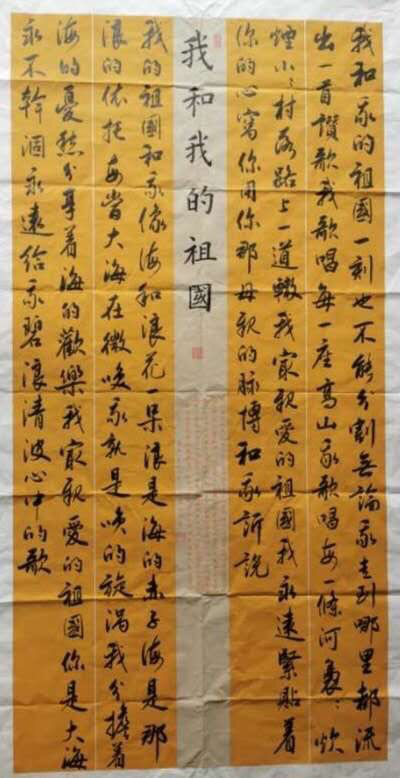 我和我的祖國一刻也不能分割無論我走到哪里都流
出一首讚歌我歌唱每一座高山我歌唱每一條河裊々炊
煙小々村落路上一道轍我最親愛的祖國我永遠緊貼着
你的心窩你用你那母親的脉搏和我訴說
我和我的祖國
我的祖國和我像海和浪花一朵浪是海的赤子海是那
浪的依托每當大海在微唤我就是唤的旋渦我分擔着
海的憂愁分享着海的歡樂我最親愛的祖國你是大海
永不幹涸永遠給我碧浪清波心中的歌